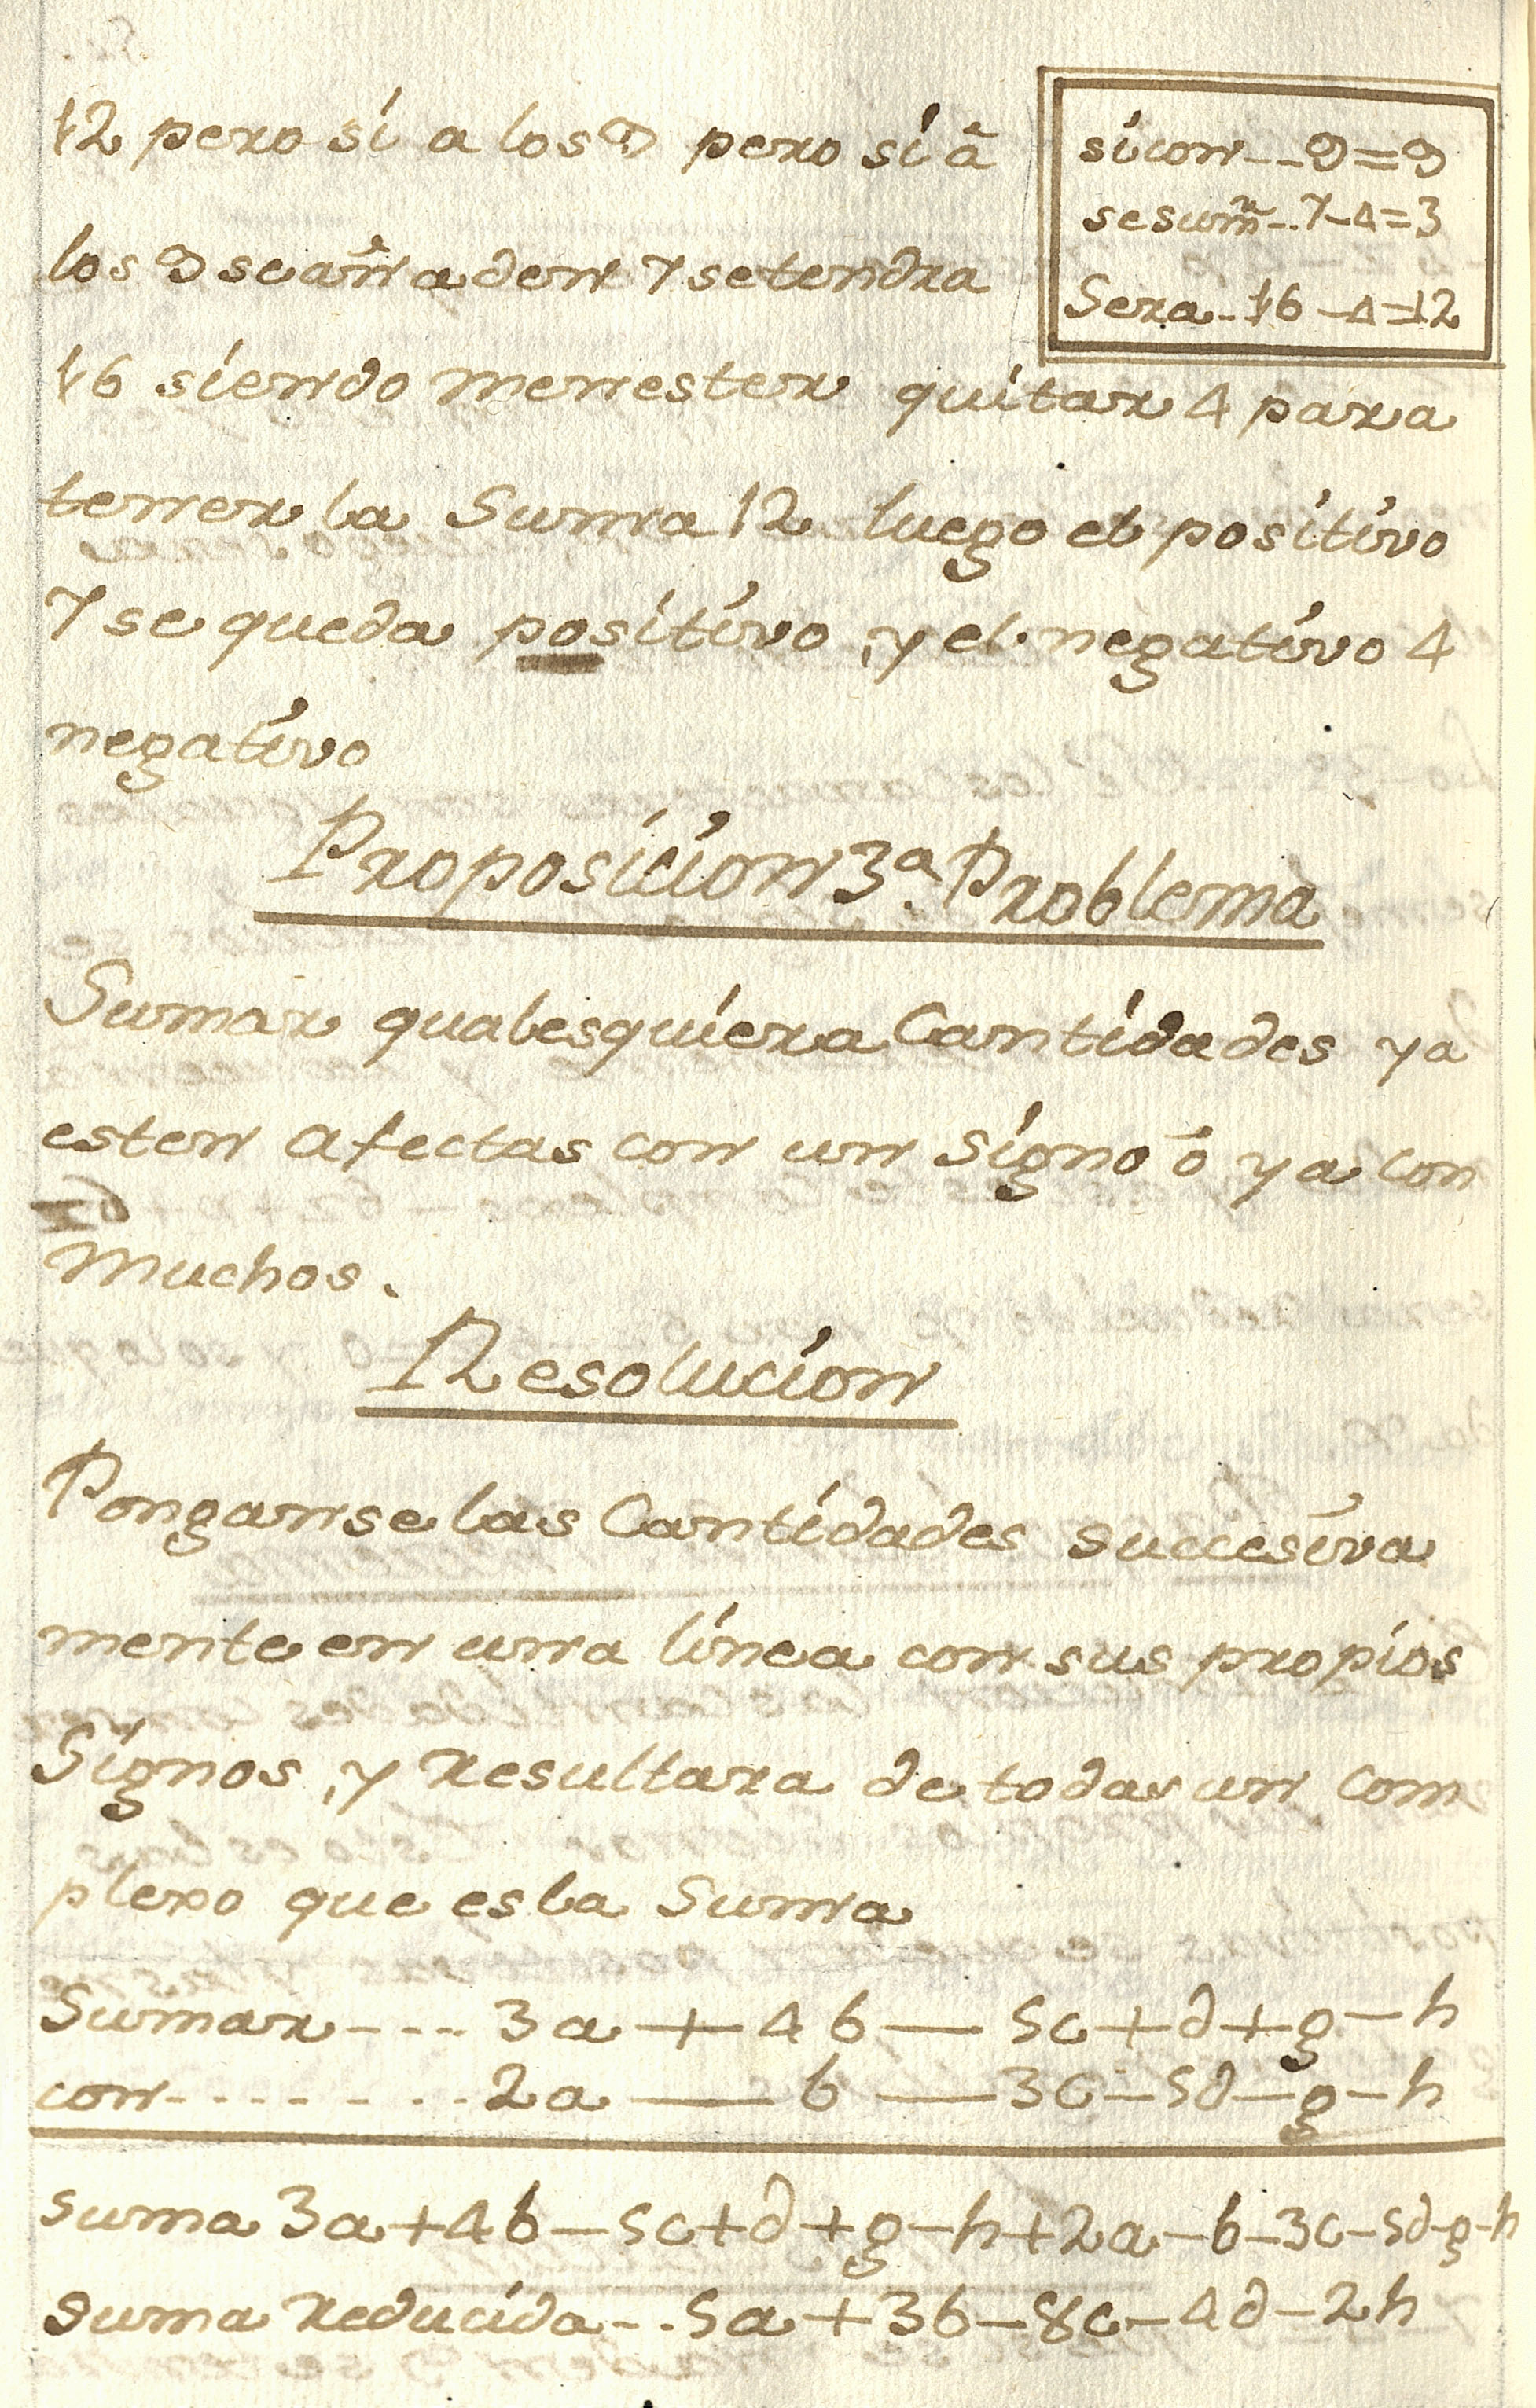 12 pero si a los 9 pero si â
los 9 se añaden 7 se tendra
16 siendo menester quitar 4 para
tener la Suma 12 luego el positivo
7 se queda positivo, y el negativo 4
negativo
si con -- 9=9
se sum.n -.. 7-4=3
Sera - 16 -4=12
Proposicion 3.a Problema
Sumar qualesquiera Cantidades ya
esten afectas con un signo ó ya con
muchos.
Resolucion
Ponganse las Cantidades succesiva
mente en una linea con sus propios
Signos, y resultara de todas un com
plexo que es la Suma
Sumar ---- 3a + 4b — 5c + d + g - h
con -------- 2a — b — 3c - 5d - g - h
suma 3a+4b-5c+d+g-h+2a-b-3c-5d-g-h
suma reducida --. 5a+3b-8c-4d-2h